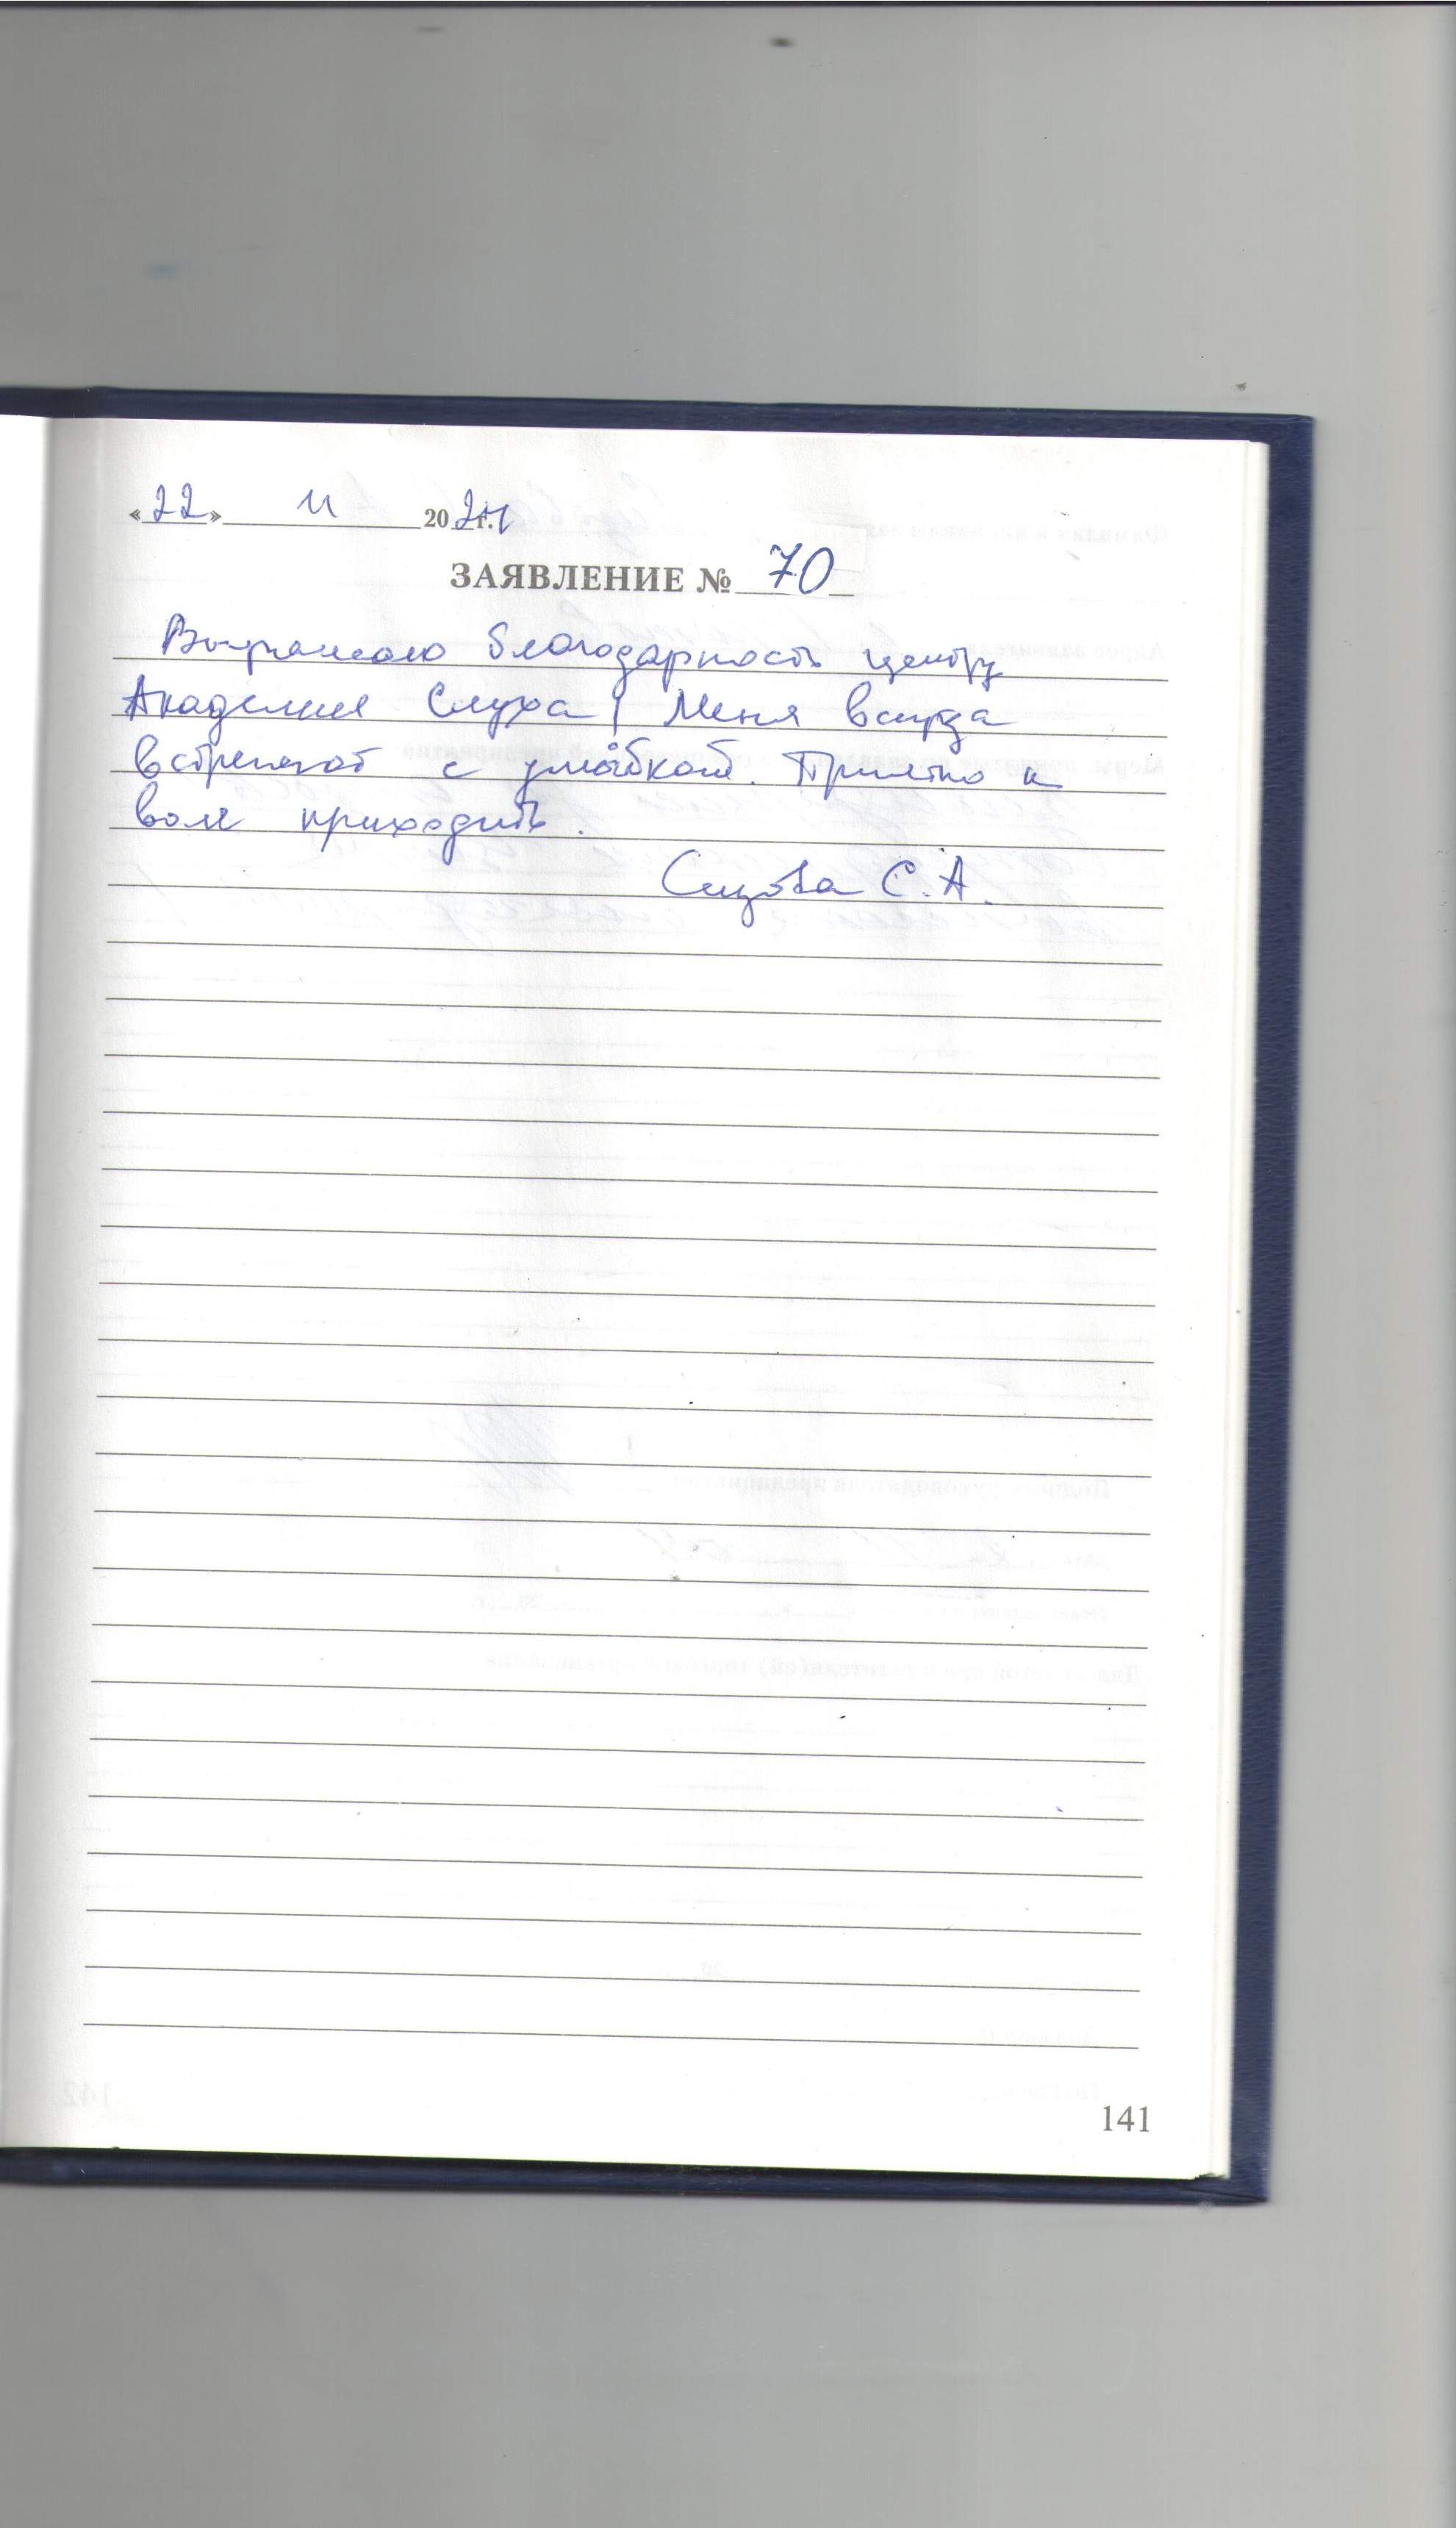 «22» 11 2024г.
ЗАЯВЛЕНИЕ № 70
Выражаю благодарность центру
Академия Слуха! Меня всегда
встречают с улыбкой. Приятно к
вам приходить.
Сизова С.А.
141